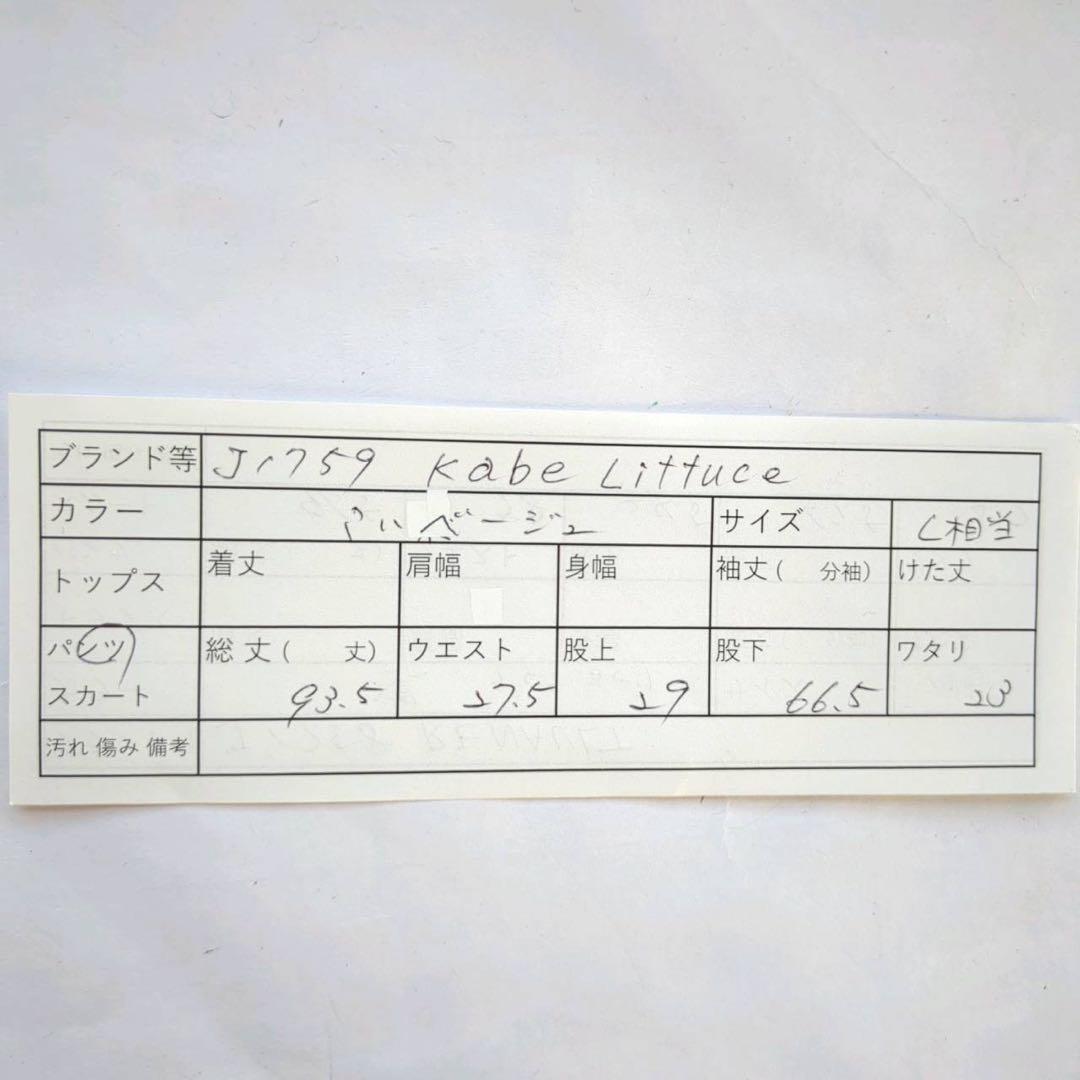 ブランド等 J1759 Kabe Littuce
カラー ベージュ サイズ L相当
トップス 着丈 肩幅 身幅 袖丈( 分袖) けた丈
パンツ 総丈( 丈) ウエスト 股上 股下 ワタリ
スカート 93.5 27.5 29 66.5 23
汚れ 傷み 備考